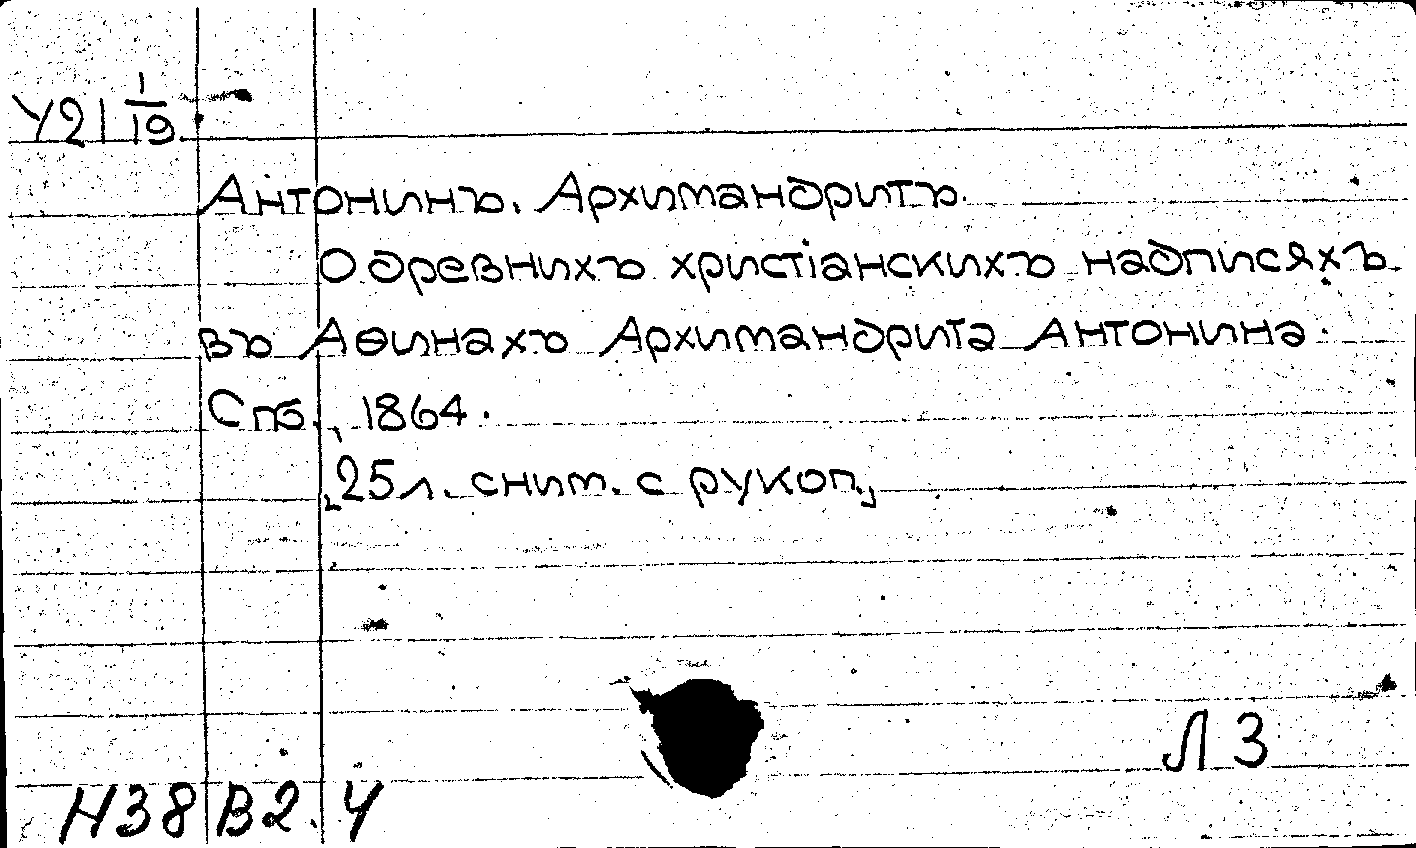 У21 1/19.
Антонинъ. Архимандритъ.
О древнихъ христіанскихъ надписяхъ
въ Аѳинахъ Архимандрита Антонина.
Спб., 1864.
25л. сним. с рукоп.,
Л З
Н38 В2.4